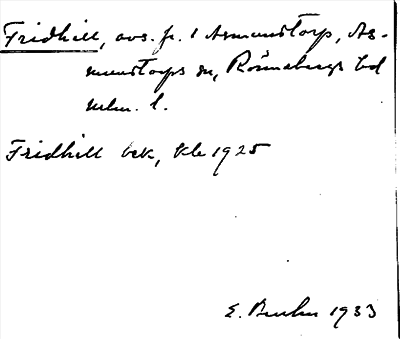 Fridhill, avs. fr. 1 Asmundstorp, As-
mundstorps sn, Rönnebergs hd
Mlm. l.
Fridhill bek, Kle 1925
E. 1933